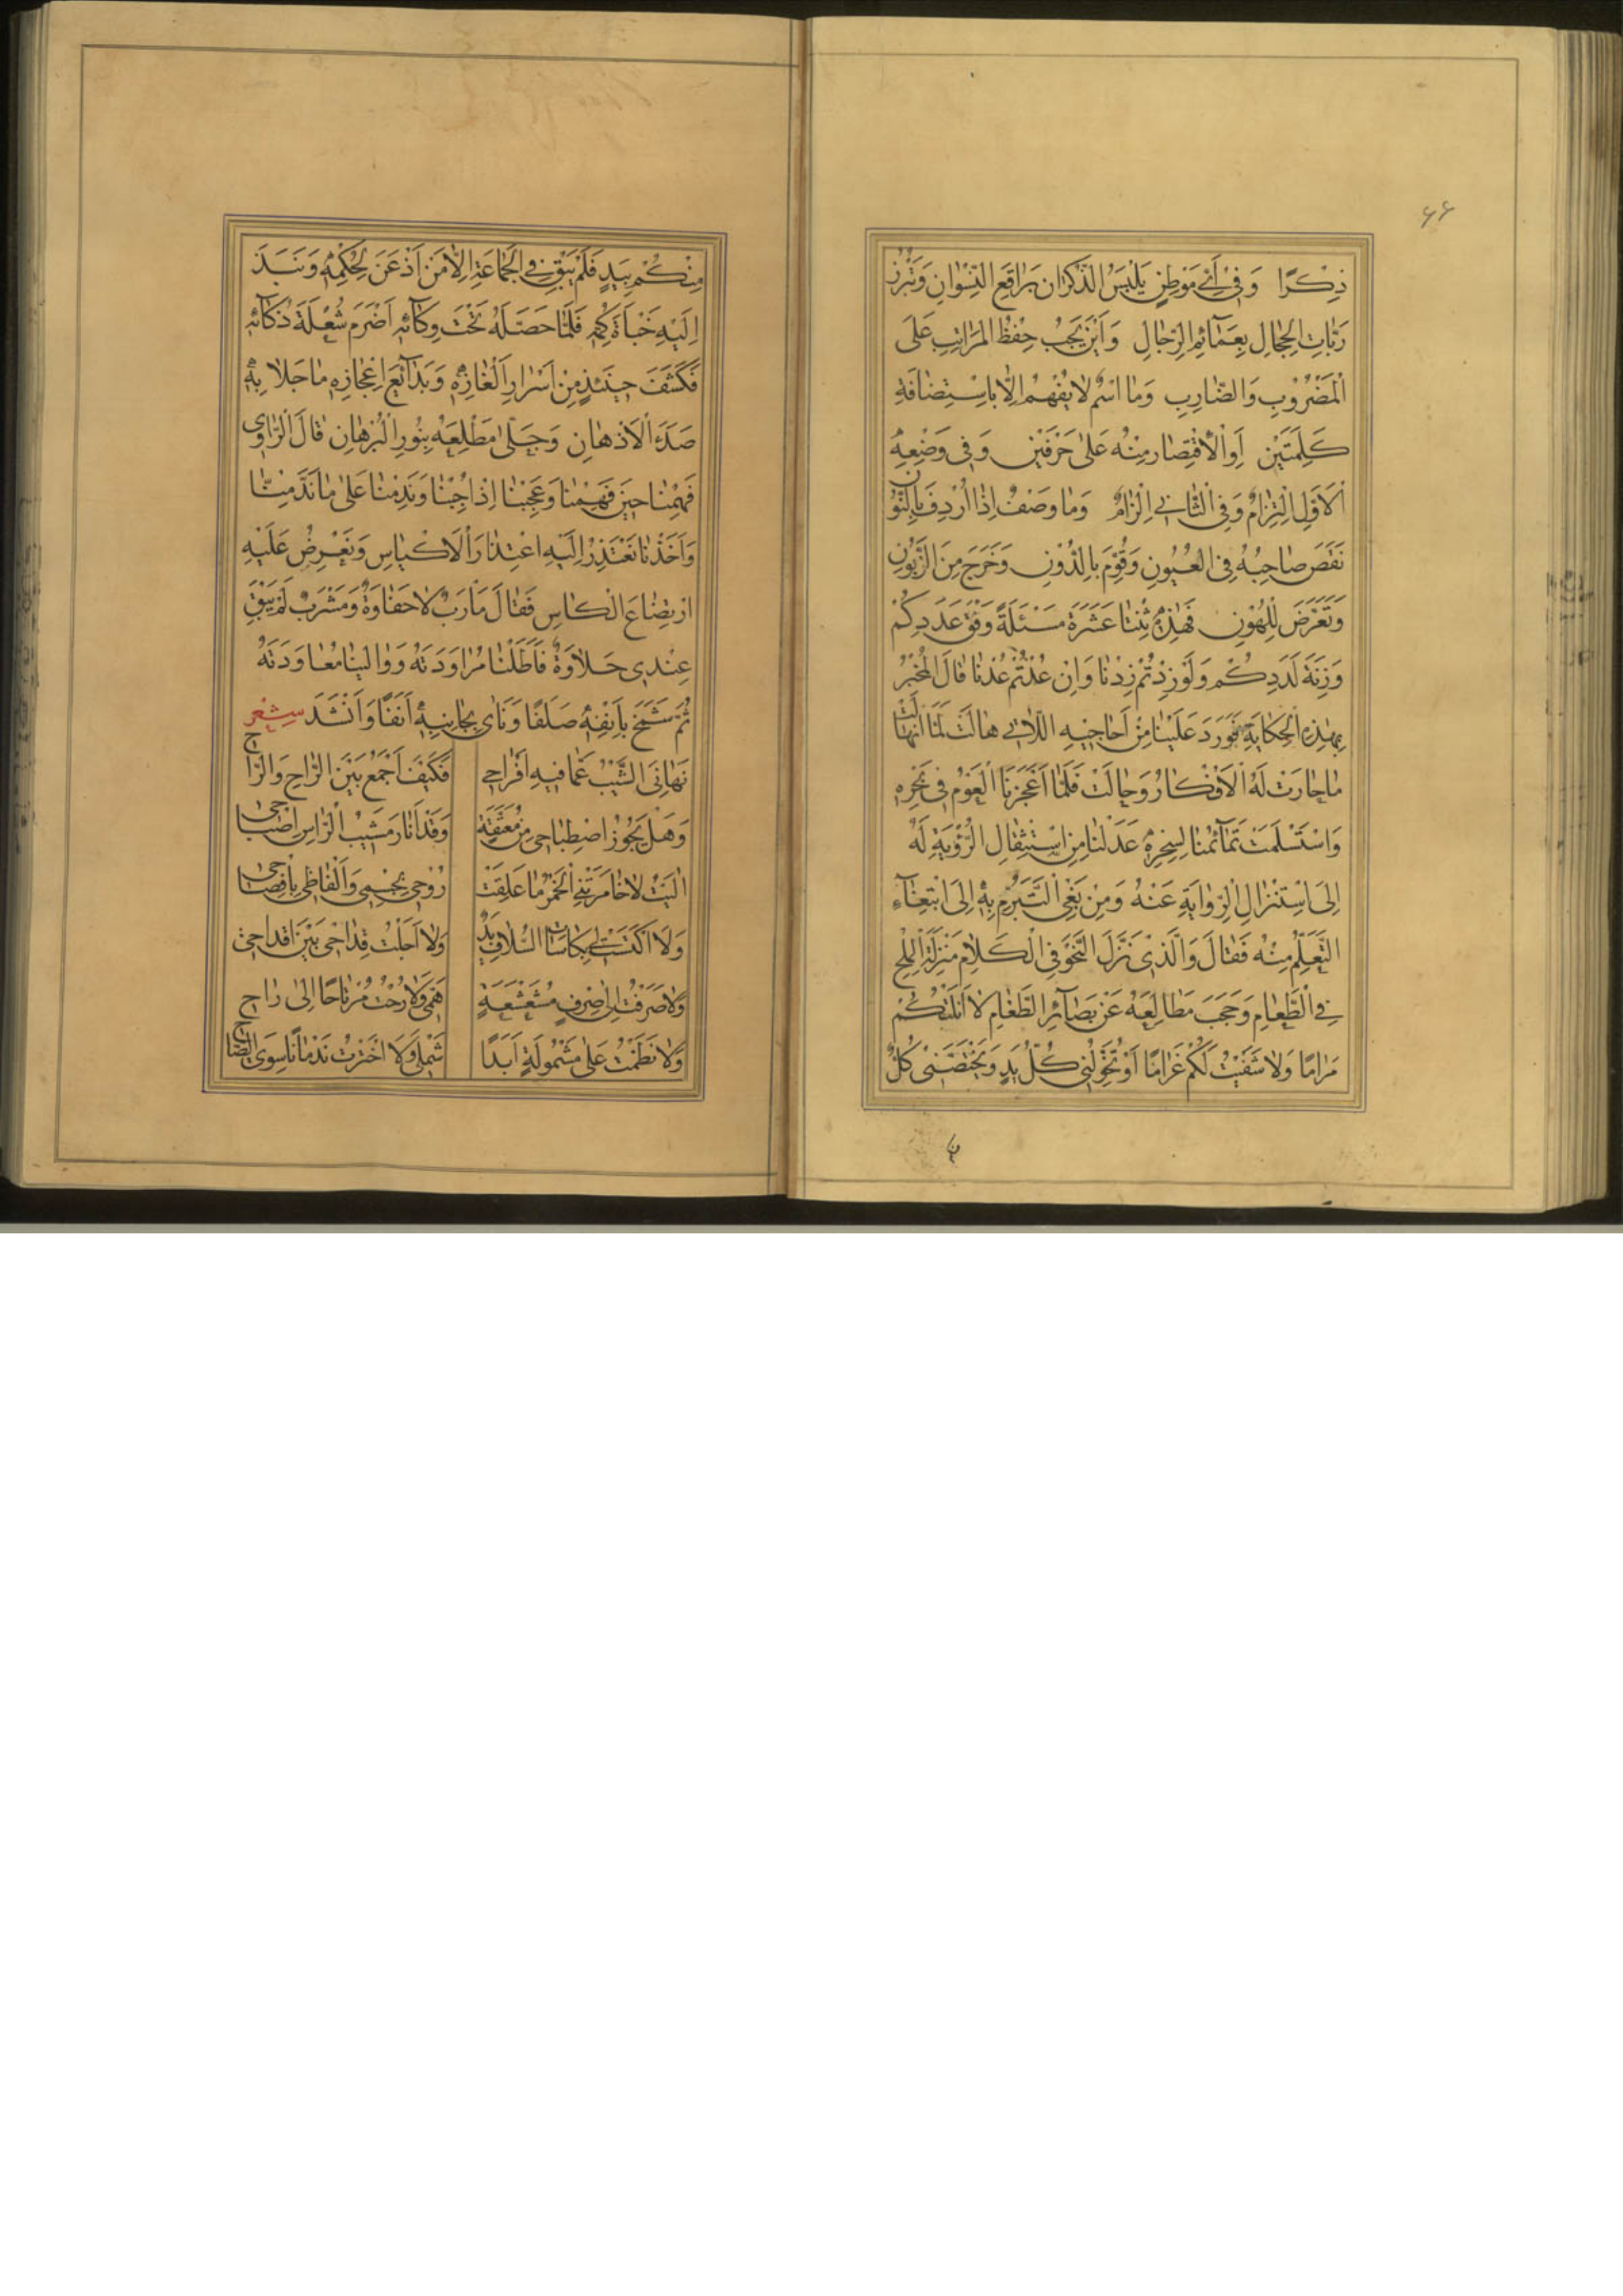 ٤٤
ذِكْرًا وَفِى أَيِّ مَوْطِنٍ يَلْبَسُ الذُّكْرَانُ بَرَاقِعَ النِّسْوَانِ وَتَبْرُزُ
رَبَّاتُ الْحِجَالِ بِعَمَآئِمِ الرِّجَالِ وَأَيْنَ يَجِبُ حِفْظُ الْمَرَاتِبِ عَلَى
الْمَضْرُوبِ وَالضَّارِبِ وَمَا اسْمٌ لَا يُفْهَمُ إِلَّا بِاسْتِضَافَةِ
كَلِمَتَيْنِ أَوِ الْاقْتِصَارِ مِنْهُ عَلَى حَرْفَيْنِ وَفِى وَضْعِهِ
الْأَوَّلِ الْتِزَامٌ وَفِى الثَّانِى إِلْزَامٌ وَمَا وَصْفٌ إِذَا أُرْدِفَ بِالنُّونِ
نَقَصَ صَاحِبُهُ فِى الْعُيُونِ وَقُوِّمَ بِالدُّونِ وَخَرَجَ مِنَ الزَّبُونِ
وَتَعَرَّضَ لِلْهُونِ فَهٰذِهِ ثِنْتَا عَشَرَةَ مَسْئَلَةً وَفْقَ عَدَدِكُمْ
وَزِنَةَ لَدَدِكُمْ وَلَوْ زِدْتُمْ زِدْنَا وَإِنْ عُدْتُمْ عُدْنَا قَالَ الْمُخْبِرُ
بِهٰذِهِ الْحِكَايَةِ فَوَرَدَ عَلَيْنَا مِنْ أَحَاجِيهِ اللَّاتِى هَالَتْ لَمَّا انْهَالَتْ
مَا حَارَتْ لَهُ الْأَفْكَارُ وَحَالَتْ فَلَمَّا أَعْجَزَنَا الْعَوْمُ فِى بَحْرِهِ
وَاسْتَسْلَمَتْ تَمَآئِمُنَا لِسِحْرِهِ عَدَلْنَا مِنِ اسْتِثْقَالِ الرُّؤْيَةِ لَهُ
إِلَى اسْتِنْزَالِ الرِّوَايَةِ عَنْهُ وَمِنْ بَغْىِ التَّبَرُّمِ بِهِ إِلَى ابْتِغَآءِ
التَّعَلُّمِ مِنْهُ فَقَالَ وَالَّذِى نَزَّلَ النَّحْوَ فِى الْكَلَامِ مَنْزِلَةَ الْمِلْحِ
فِى الطَّعَامِ وَحَجَبَ مَطَالِعَهُ عَنْ بَصَآئِرِ الطَّغَامِ لَا أَنَلْتُكُمْ
مَرَامًا وَلَا شَفَيْتُ لَكُمْ غَرَامًا أَوْ تُخَوِّلُنِى كُلُّ يَدٍ وَيَخْتَصَّنِى كُلٌّ
مِنْكُمْ بِيَدٍ فَلَمْ يَبْقَ فِى الْجَمَاعَةِ إِلَّا مَنْ أَذْعَنَ لِحُكْمِهِ وَنَبَذَ
إِلَيْهِ خَبْأَةَ كُمِّهِ فَلَمَّا حَصَّلَهُ تَحْتَ وِكَآئِهِ أَضْرَمَ شُعْلَةَ ذَكَآئِهِ
فَكَشَفَ حِينَئِذٍ مِنْ أَسْرَارِ أَلْغَازِهِ وَبَدَآئِعِ إِعْجَازِهِ مَا جَلَا بِهِ
صَدَءَ الْأَذْهَانِ وَجَلَّى مَطْلِعَهُ بِنُورِ الْبُرْهَانِ قَالَ الرَّاوِى
فَهِمْنَا حِينَ فَهِمْنَا وَعَجِبْنَا إِذْ أُجِبْنَا وَنَدِمْنَا عَلَى مَا نَدَّ مِنَّا
وَأَخَذْنَا نَعْتَذِرُ إِلَيْهِ اعْتِذَارَ الْأَكْيَاسِ وَنَعْرِضُ عَلَيْهِ
ارْتِضَاعَ الْكَاسِ فَقَالَ مَأْرَبٌ لَا حَفَاوَةٌ وَمَشْرَبٌ لَمْ يَبْقَ
عِنْدِى حَلَاوَةٌ فَأَطَلْنَا مُرَاوَدَتَهُ وَوَالَيْنَا مُعَاوَدَتَهُ
ثُمَّ شَمَخَ بِأَنْفِهِ صَلَفًا وَنَاٰى بِجَانِبِهِ أَنَفًا وَأَنْشَدَ شِعْر
نَهَانِىَ الشَّيْبُ عَمَّا فِيهِ أَفْرَاحِى فَكَيْفَ أَجْمَعُ بَيْنَ الرَّاحِ وَالرَّاحِ
وَهَلْ يَجُوزُ اصْطِبَاحِى مِنْ مُعَتَّقَةٍ وَقَدْ أَنَارَ مَشِيبُ الرَّاسِ إِصْبَاحِى
آلَيْتُ لَا خَامَرَتْنِى الْخَمْرُ مَا عَلِقَتْ رُوحِى بِجِسْمِى وَأَلْفَاظِى بِإِفْصَاحِى
وَلَا اكْتَسَتْ لِى بِكَاسَاتِ السُّلَافِ يَدٌ وَلَا أَجَلْتُ قِدَاحِى بَيْنَ أَقْدَاحِى
وَلَا صَرَفْتُ إِلَى صِرْفٍ مُشَعْشَعَةٍ هَمِّى وَلَا رُحْتُ مُرْتَاحًا إِلَى رَاحِ
وَلَا نَظَمْتُ عَلَى مَشْمُولَةٍ أَبَدًا شَمْلِى وَلَا اخْتَرْتُ نَدْمَانًا سِوَى الصَّاحِ